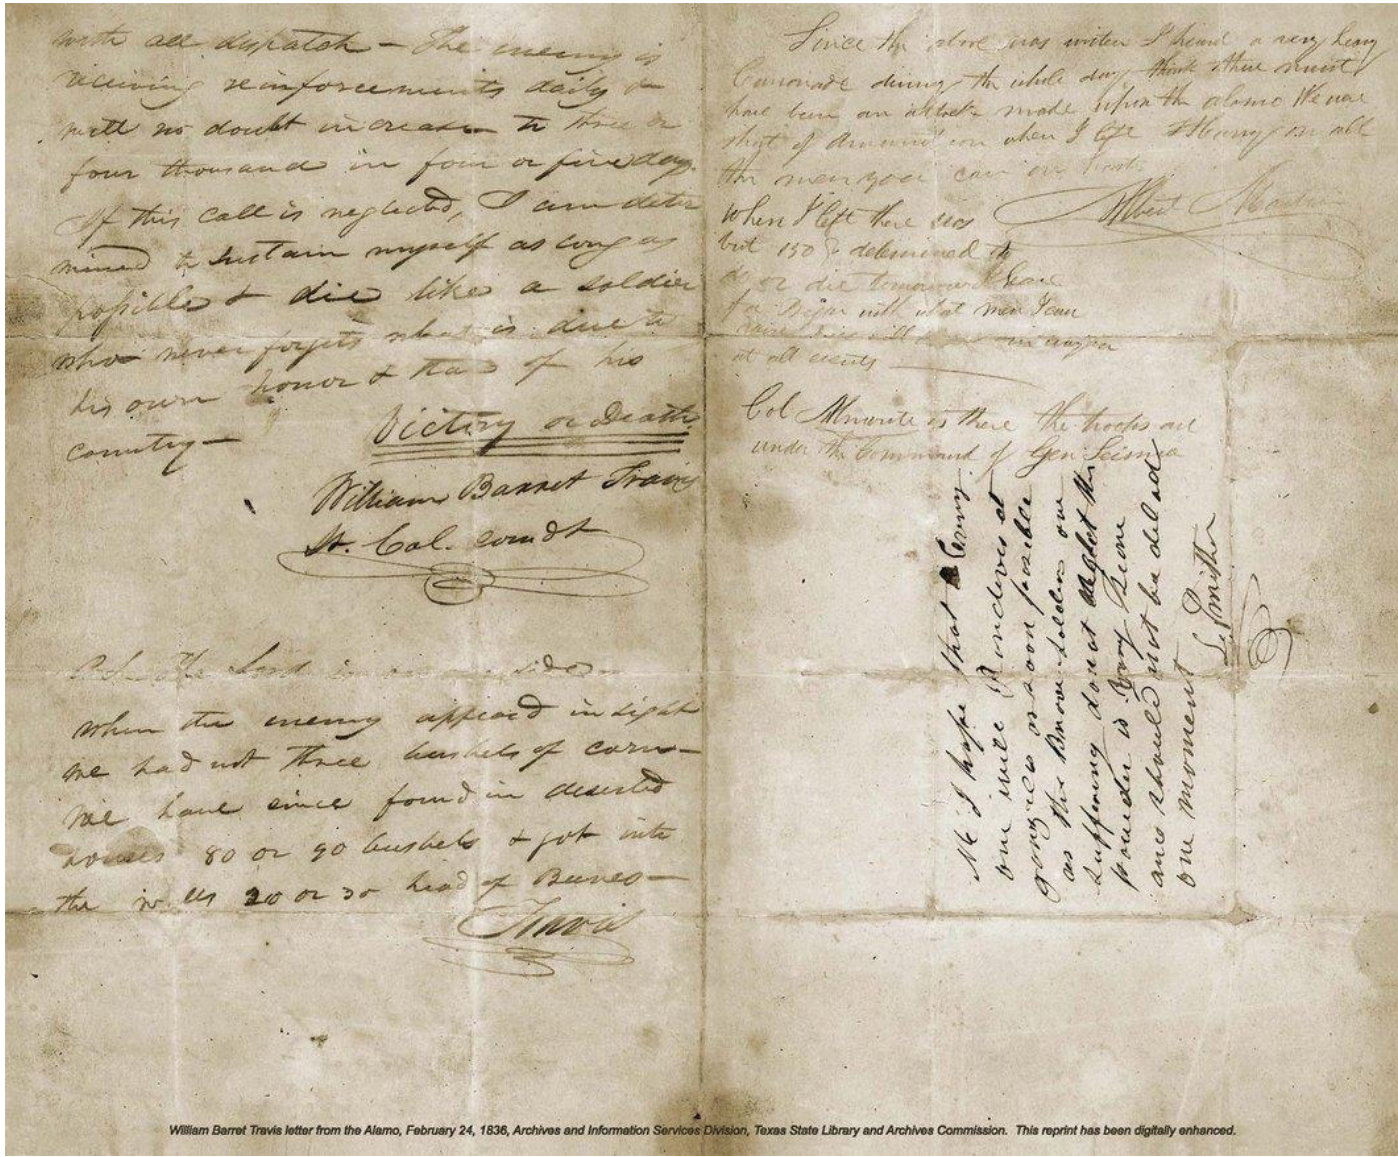 with all dispatch — The enemy is
receiving reinforcements daily &
will no doubt increase to three or
four thousand in four or five days.
If this call is neglected, I am deter
mined to sustain myself as long as
possible & die like a soldier
who never forgets what is due to
his own honor & that of his
country —
Victory or Death
William Barret Travis
Lt. Col. comdt
P.S. The Lord is on our side —
when the enemy appeard in sight
we had not three bushels of corn —
we have since found in deserted
houses 80 or 90 bushels & got into
the walls 20 or 30 head of Beeves —
Travis
Since the above was writen I heard a very heavy
Canonade during the whole day think there must
have been an attack made upon the alamo We were
short of when I left Hurry on all
the men you can
Albert Martin
When I left there was
but 150 determined to
do or die tomorrow I leave
for Bejar with what men I can
raise
at all events
Col Almonte is there the troops are
under the Command of Gen Seisma
I hope that
one will Randevus at
gonzales as soon posible
as the Brave soldiers are
suffering do not neglect the
powder is very scarce
and should not be delad
one moment
L. Smither
William Barret Travis letter from the Alamo, February 24, 1836, Archives and Information Services Division, Texas State Library and Archives Commission. This reprint has been digitally enhanced.